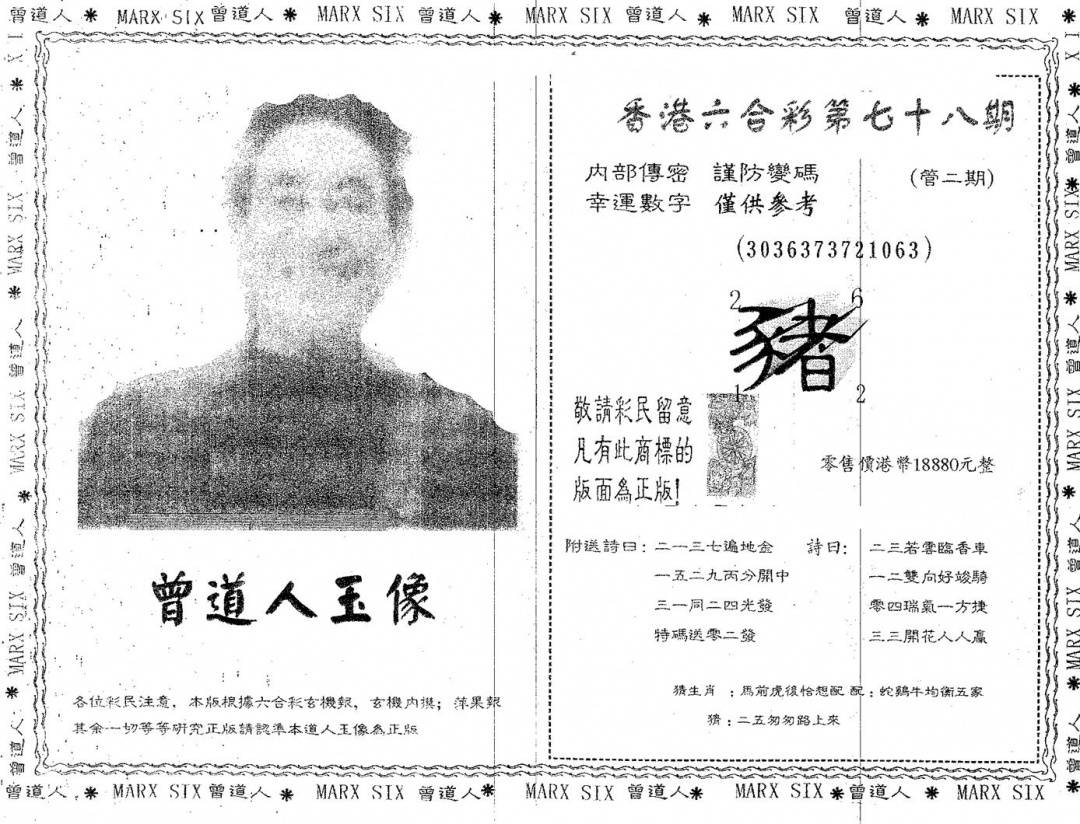 曾道人 * MARX SIX 曾道人 * MARX SIX 曾道人 * MARX SIX 曾道人 * MARX SIX 曾道人 * MARX SIX *
香港六合彩第七十八期
內部傳密 謹防變碼
(管二期)
幸運數字 僅供參考
(3036373721063)
2 6
豬
1 2
敬請彩民留意
凡有此商標的
版面為正版!
零售價港幣18880元整
附送詩曰：二一三七遍地金
一五二九丙分開中
三一同二四光發
特碼送零二發
詩曰：二三若雲臨香車
一二雙向好竣騎
零四瑞氣一方捷
三三開花人人贏
猜生肖：馬前虎後恰想配 配：蛇鷄牛均衡五家
猜：二五匆匆路上來
曾道人玉像
各位彩民注意，本版根據六合彩玄機報，玄機內摸；萍果報
其余一切等等研究正版請認準本道人玉像為正版
曾道人 * MARX SIX 曾道人 * MARX SIX 曾道人 * MARX SIX 曾道人 * MARX SIX * 曾道人 * MARX SIX *